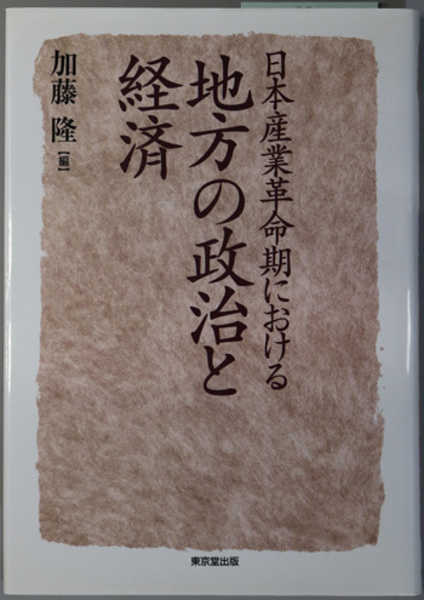 日本産業革命期における
地方の政治と
経済
加藤 隆
【編】
東京堂出版